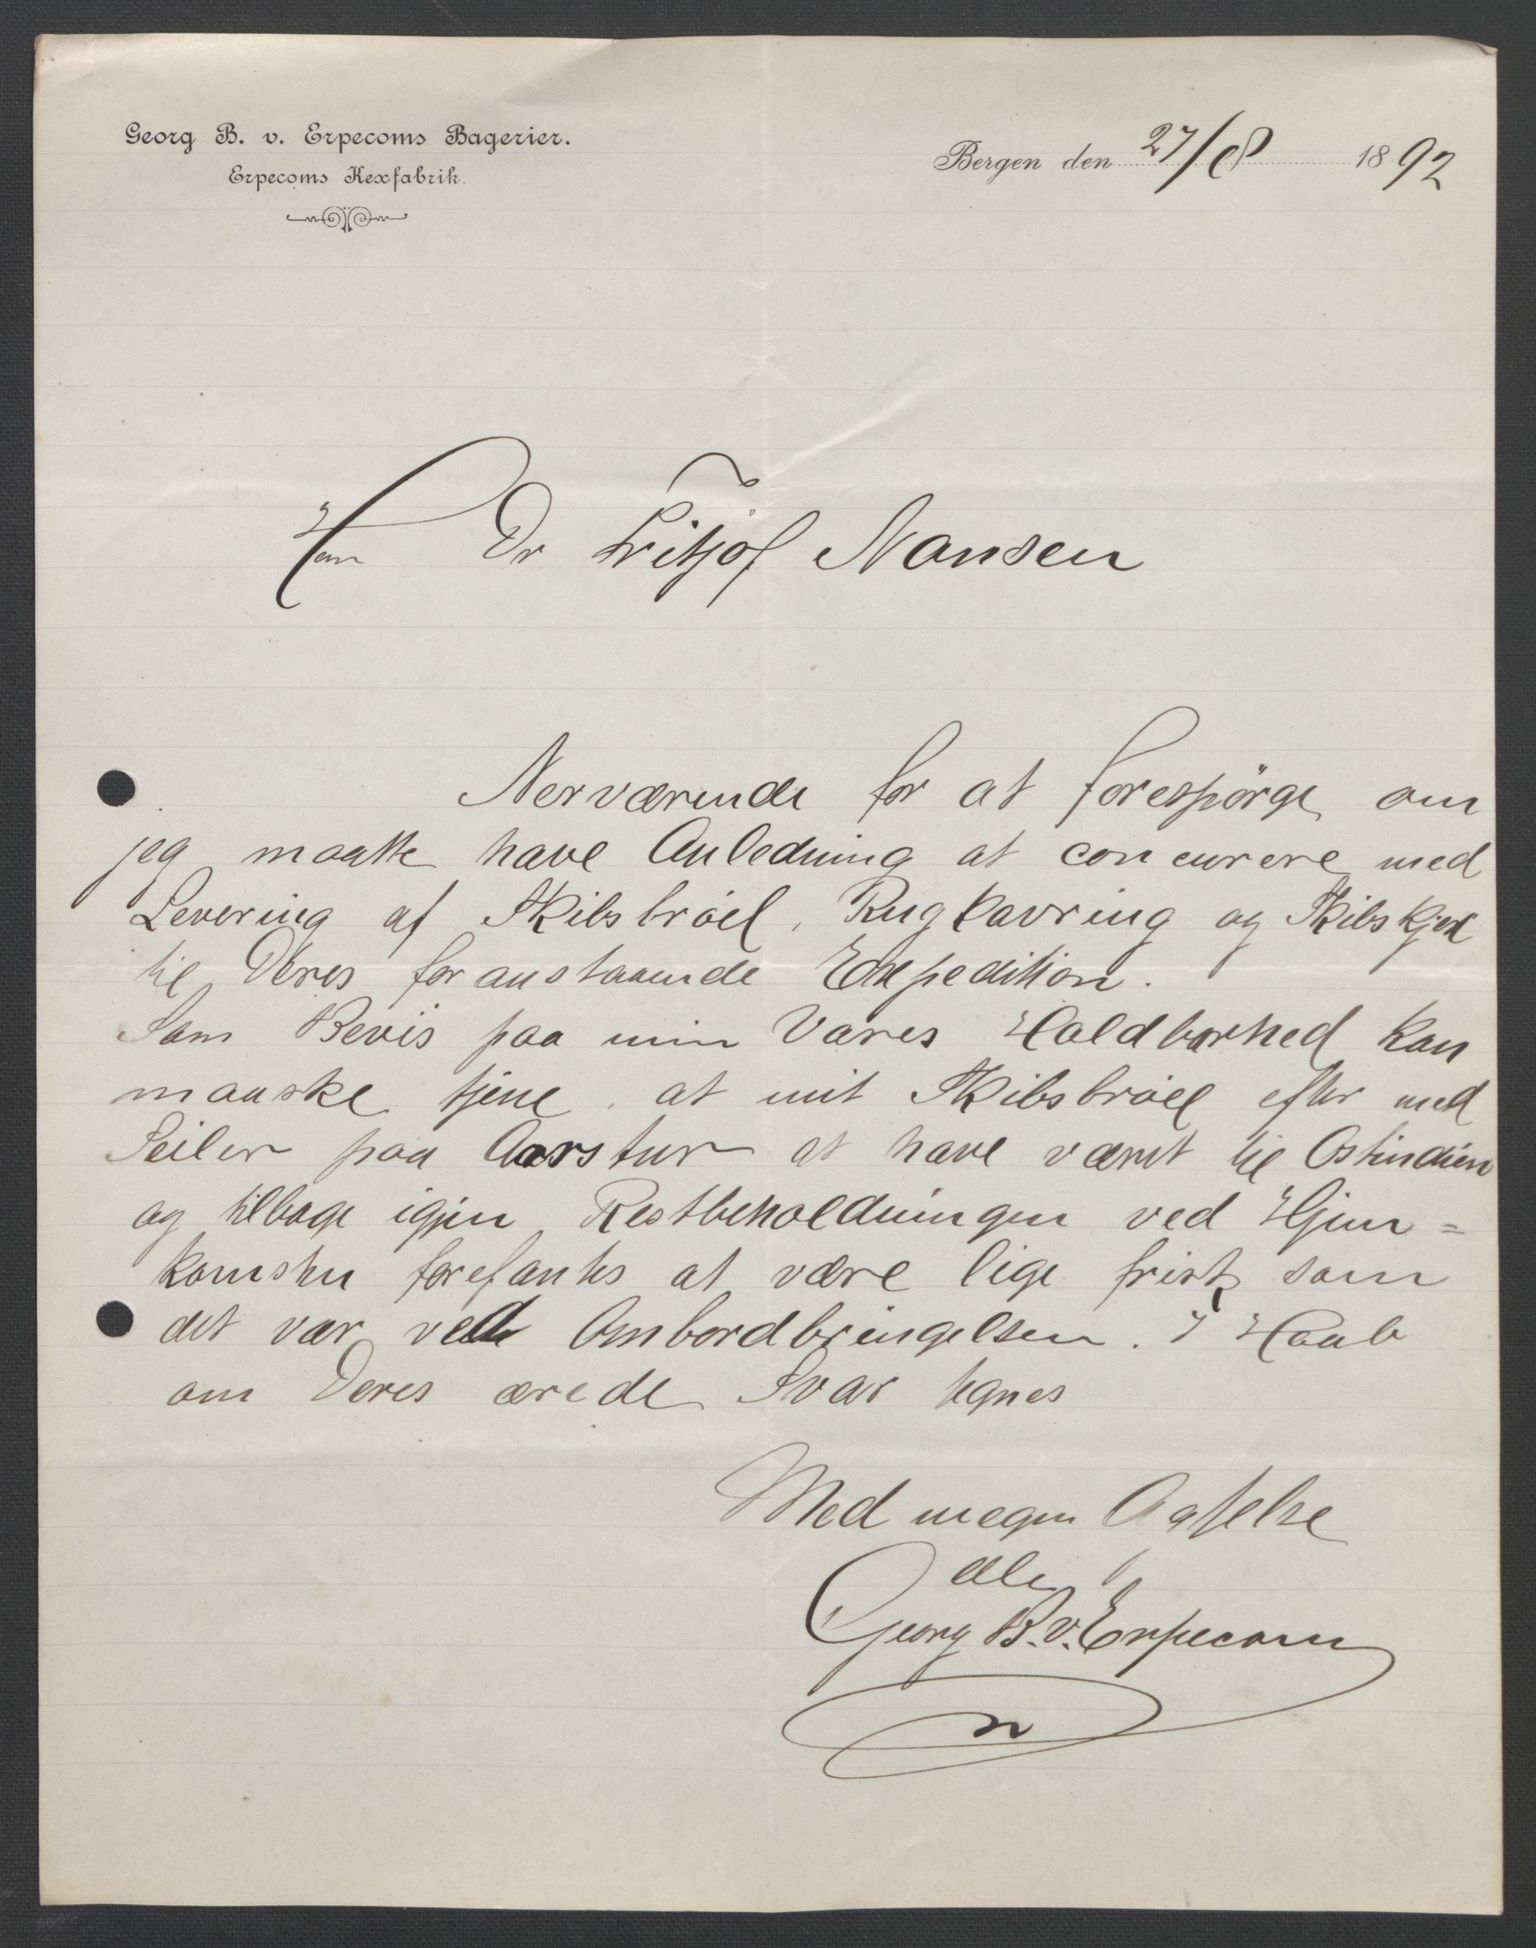 Georg B. v. Erpecoms Bagerier.
Erpecoms Kexfabrik.
Bergen den 27/8 1892
Herr Dr Fritjof Nansen
Nerværende for at forespörge om
jeg maatte have Anledning at concurere med
Levering af Skibsbröd, Rugkavring og Skibskjex
til Deres foranstaaende Expedition.
Som Bevis paa min Vares Holdbarhed kan
maaske tjene, at mit Skibsbröd efter med
Seiler paa Aarstur at have været til Ostindien
og tilbage igjen, Restbeholdningen ved Hjem=
komsten forefantes at være lige frisk som
det var ved Ombordbringelsen. I Haab
om Deres ærede Svar tegnes
Med megen Agtelse
Georg B. v. Erpecom